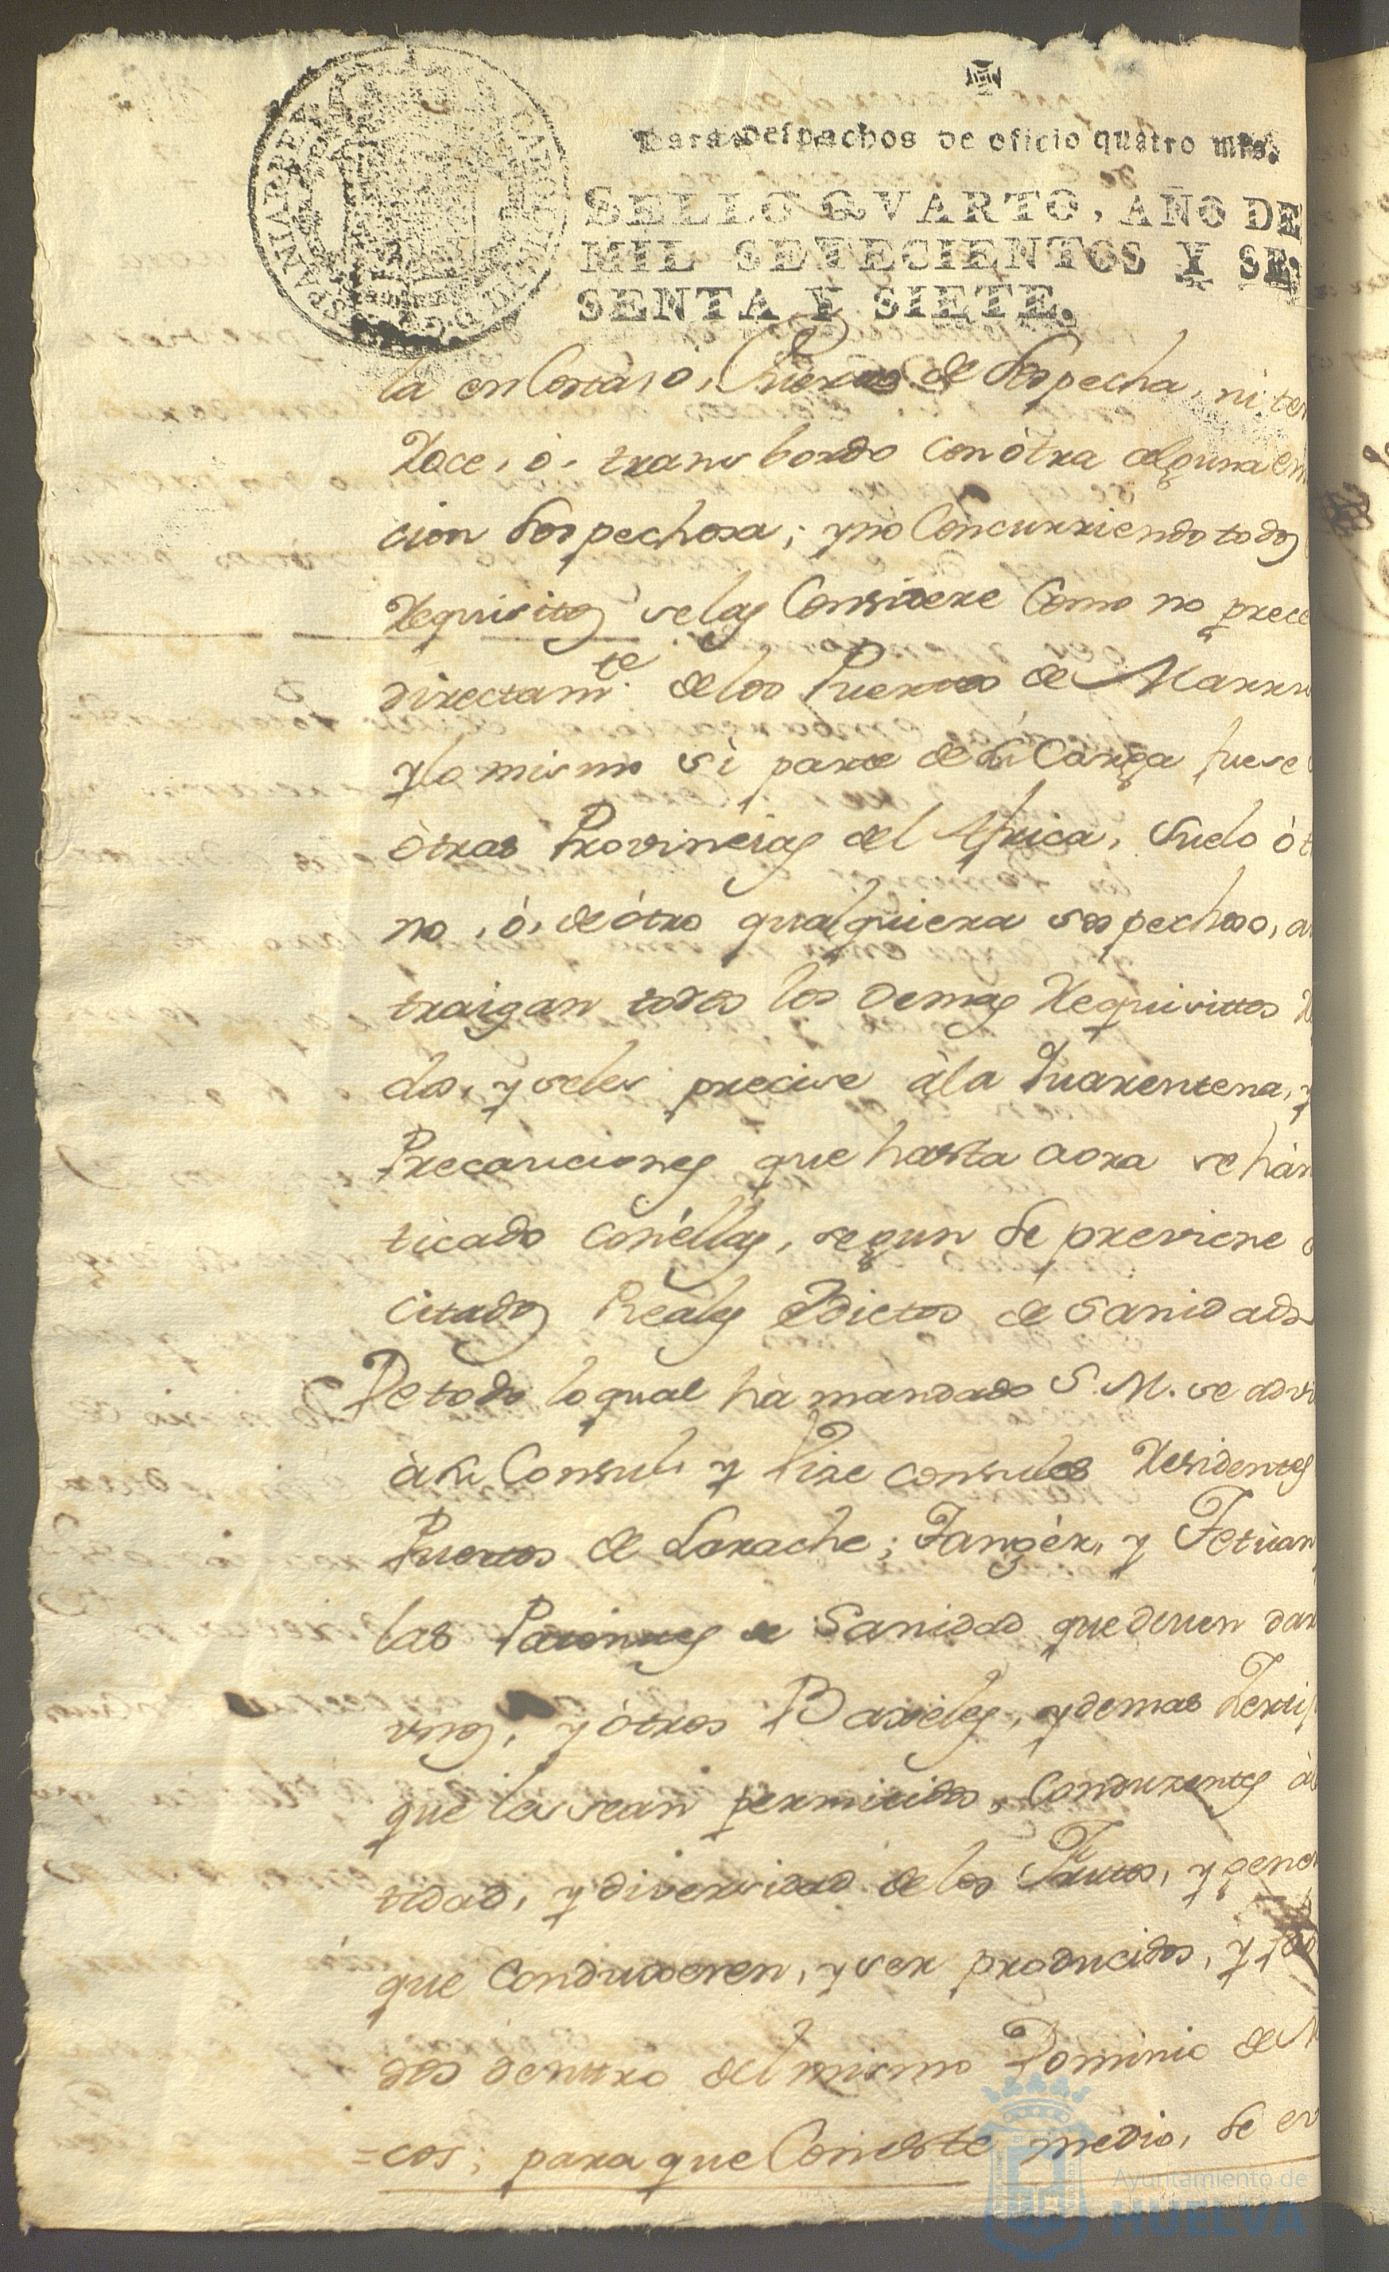 Para Despachos de oficio quatro mrs.
SELLO QVARTO, AÑO DE
MIL SETECIENTOS Y SE
SENTA Y SIETE.
la en Costa, ò, Puertos de Sospecha, ni ten
Roce, ò, transbordo con òtra alguna em
cion Sospechosa; y no Concurriendo todos
Requisitos se las Considere Como no proce
directam.te de los Puertos de Marru
y lo mismo si parte de su Carga fuese
òtras Provincias del Africa, Suelo òt
no, ò, de òtro qualquiera sospechoso, a
traigan todos los demas Requisittos
dos, y seles precise à la Quarentena, y
Precauciones que hasta aora se hàn
ticado con èllas, segun se previene
citados Reales Edictos de Sanidad
De todo lo qual hà mandado S. M. se advi
à su Consul y Vize consules Residentes
Puertos de Larache; Tangèr, y Tetuan
las Patentes de Sanidad que deven dar
unos, y òtros Baxeles, y demas Zertif
que les sean permitidos, Conduzentes à
tidad, y diversidad de los Frutos, y gene
que Conduxeren, y ser producidos, y
dos dentro del mismo Dominio de M
=cos; para que Con èste medio, se ev
Ayuntamiento de
HUELVA